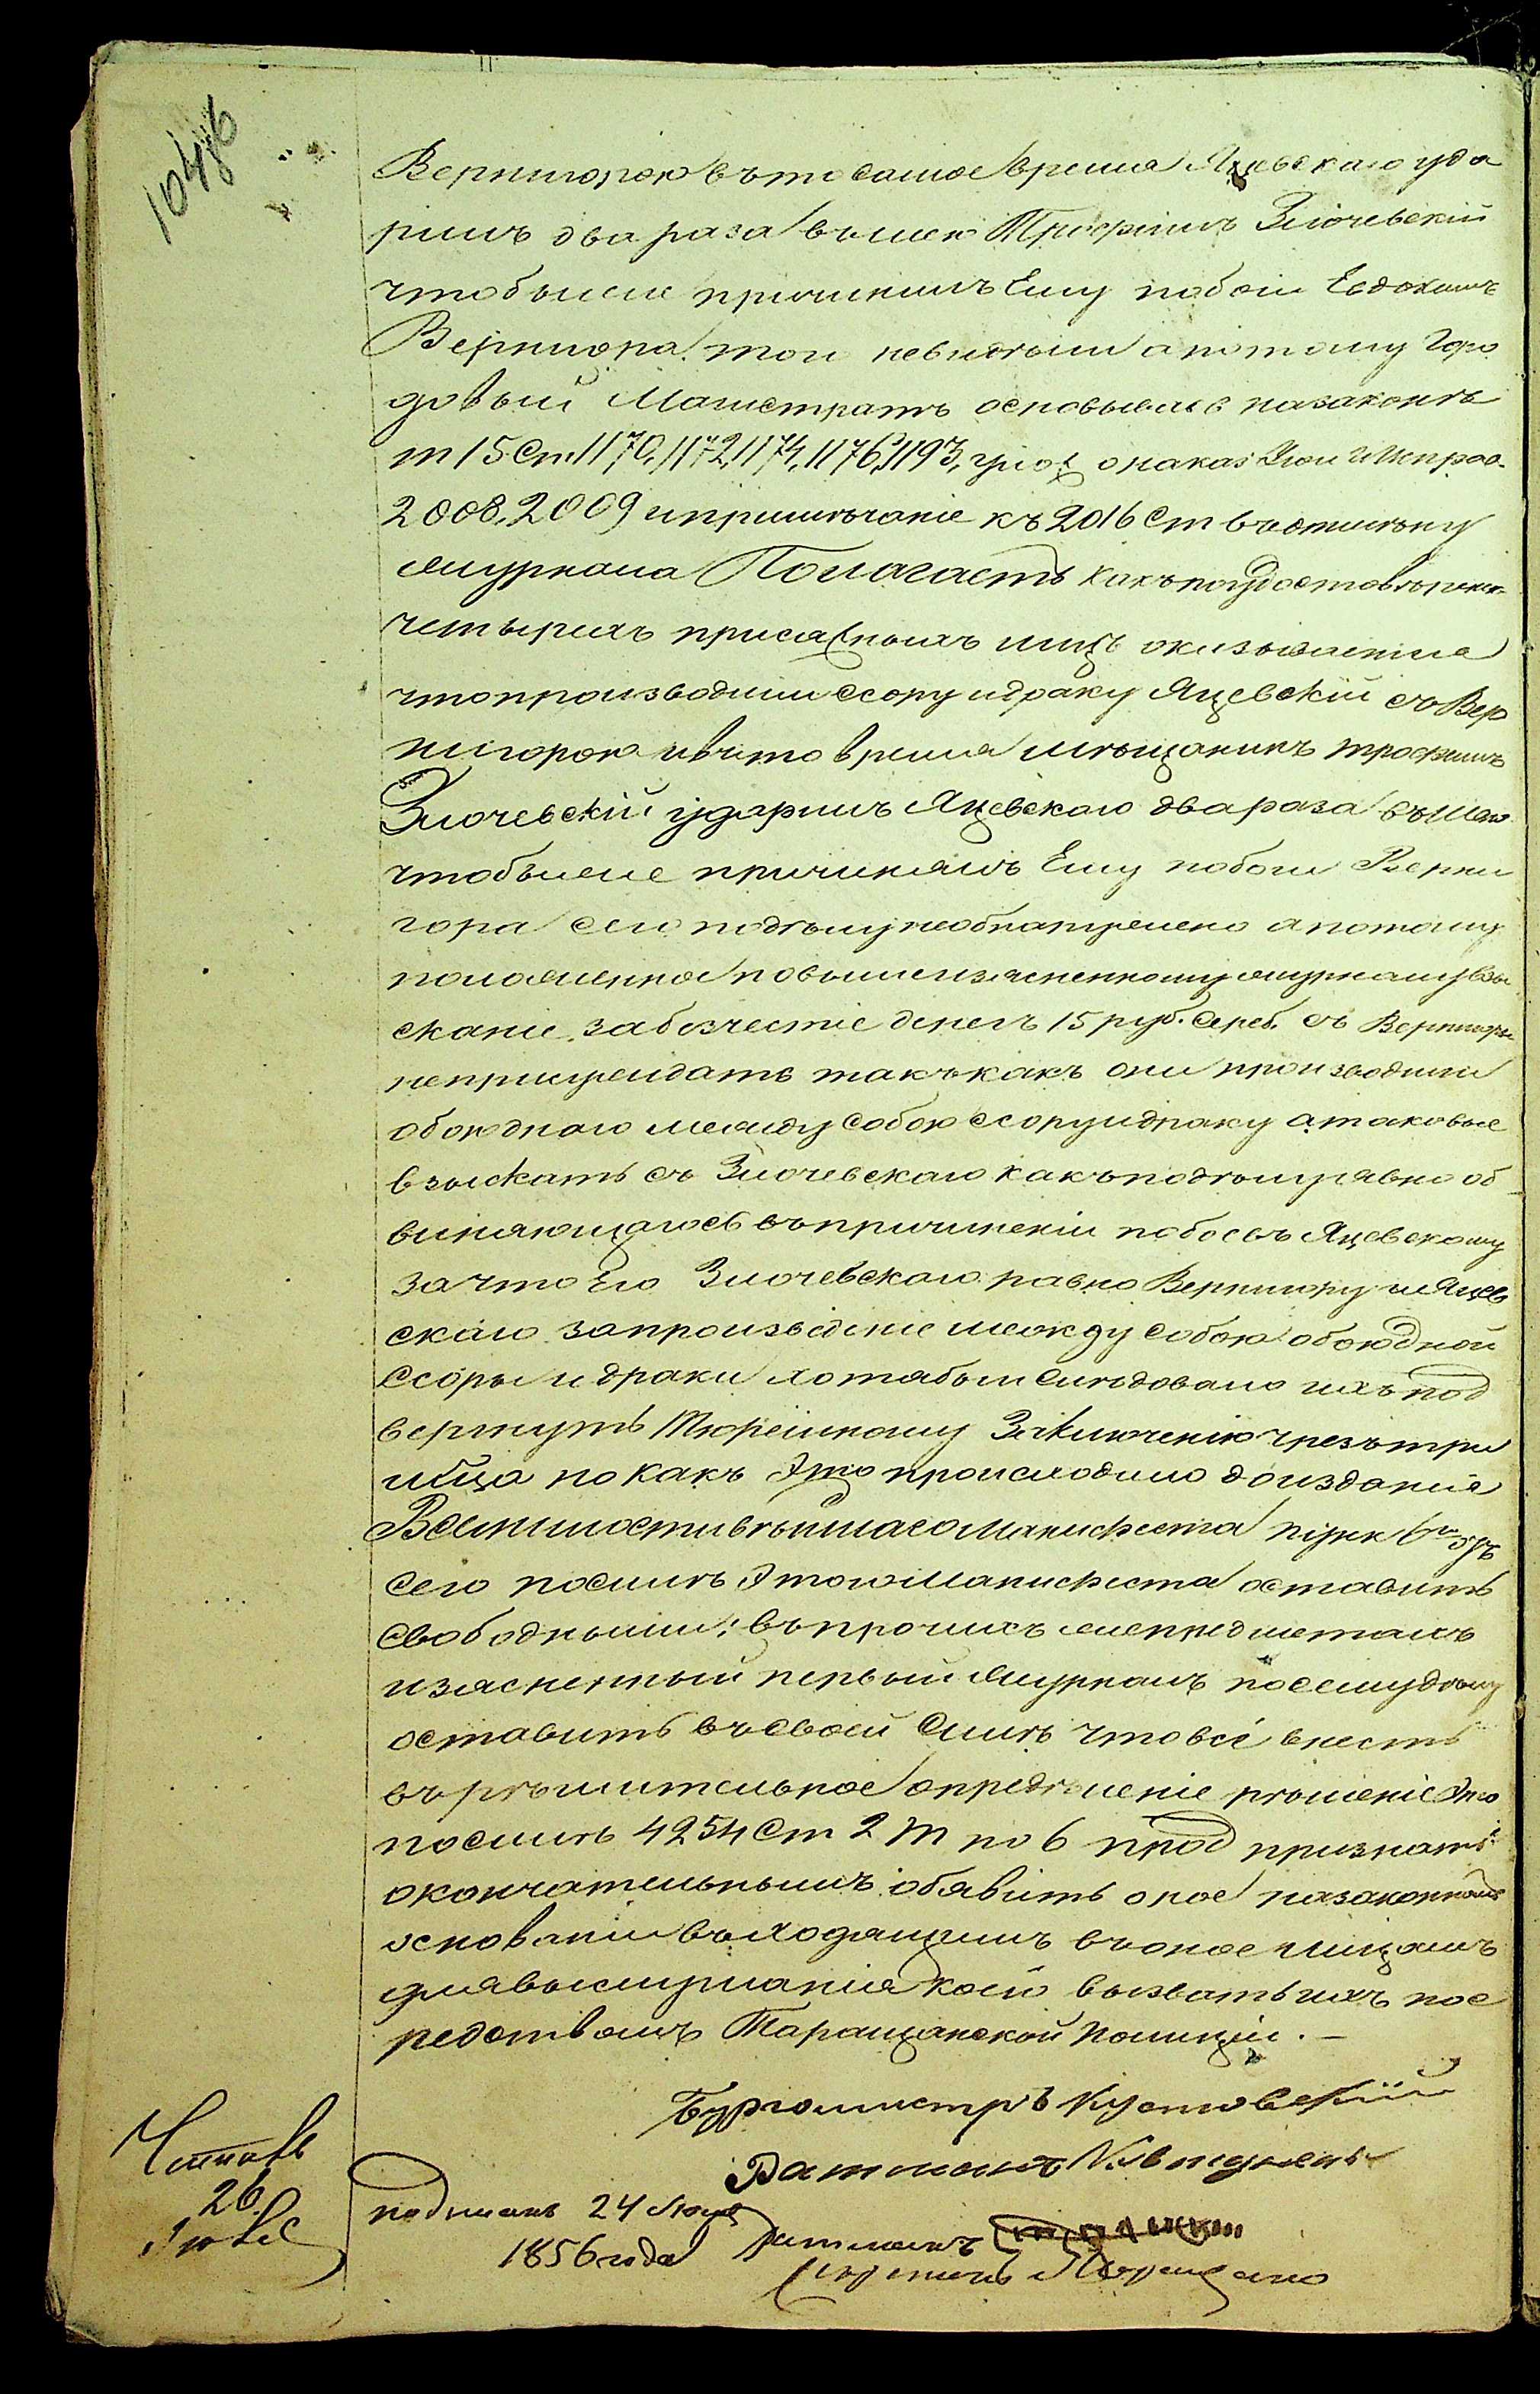 Вернигорою въ то самое время Яцевскаго уда
рилъ два раза въ шею Трофимъ Злочевскій
чтобы же причинилъ Ему побои Евдокимъ
Вернигора, того невидѣли а потому Горо
довый Магистратъ основываясь на законѣ
т 15 Ст. 1170, 1172, 1174, 1176, 1193, улож о наказ Угол и Исправ.
2008, 2009 и примѣчаніе къ 2016 Ст въ отмѣну
журнала Полагаетъ какъ по удостовѣренію
четырехъ присяжныхъ лицъ оказывается
что производили ссору и драку Яцевскій съ Вер
нигорою и въ то время мѣщанинъ трофимъ
Злочевскій ударилъ Яцевскаго два раза въ шею
чтобы же причинялъ Ему побои Верни
гора сего по дѣлу необнаружено а потому
положенное по вышеизясненному журналу взы
сканіе за безчестіе денегъ 15 руб. Сереб. съ Вернигоры
неприсуждать такъ какъ они производили
обоюдную между собою ссору и драку а таковые
взыскать съ Злочевскаго какъ по дѣлу явно об
виняющагося въ причиненіи побоевъ Яцевскому
за что Его Злочевскаго равно Вернигору и Яцев
скаго за произведеніе между собою обоюдной
Ссоры и драки хотябы и Слѣдовало ихъ под
вергнуть Тюремному Заключенію чрезъ три
мѣца но какъ Это происходило до изданія
Всемилостивѣйшаго Манифеста
Сего по силѣ Этого Манифеста оставить
Свободными; въ прочихъ же предметахъ
изясненный первый журналъ по сему дѣлу
оставить въ своей Силѣ что всё внесть
въ рѣшительное опредѣленіе рѣшеніе Это
по силѣ 4254 Ст 2 Т по 6 прод признать
окончательнымъ обявить оное на законномъ
основаніи выходящимъ въ оное лицамъ
для выслушанія коего вызвать ихъ пос
редствомъ Таращанской Полиціи. —
Бургомистръ Кустовскій
Ратманъ
подписанъ 24
1856 года Ратманъ
26
1048